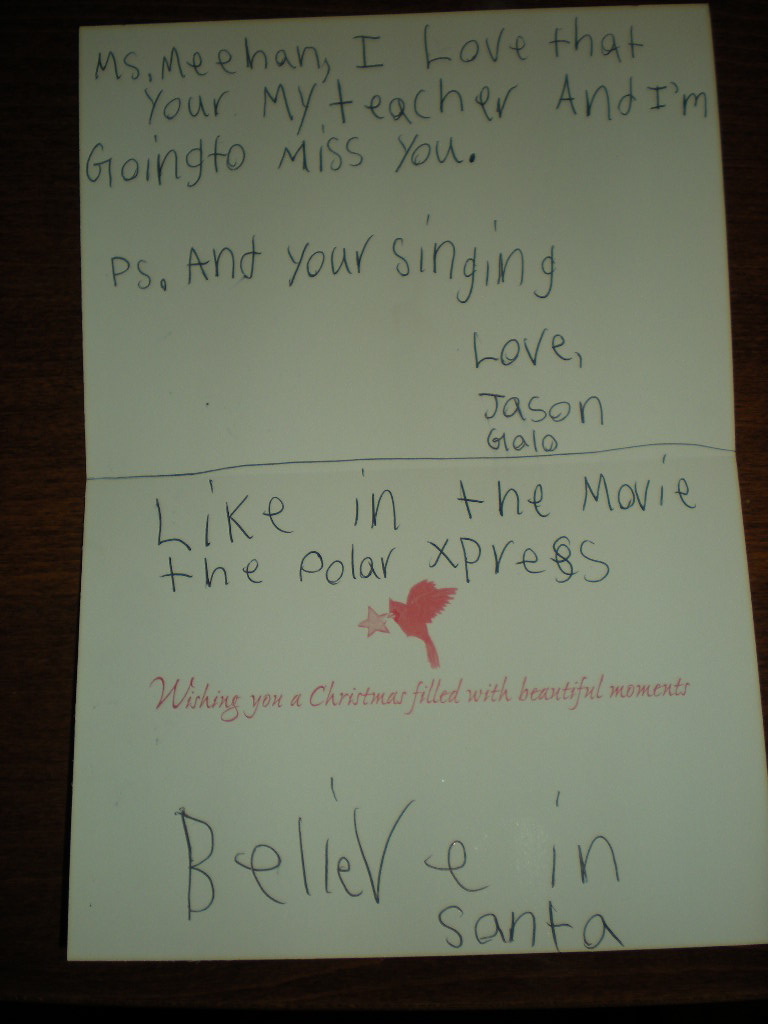 Ms. Meehan, I Love that
your My teacher And I'm
Going to Miss you.
Ps. And your singing
Love,
Jason
Galo
Like in the Movie
the polar xpress
Wishing you a Christmas filled with beautiful moments
Believe in
santa